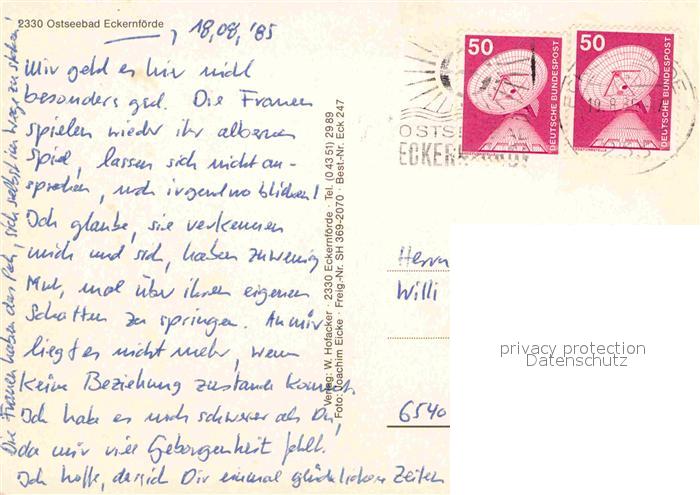 2330 Ostseebad Eckernförde
18,08,'85
Mir geht es hier nicht
besonders gut. Die Frauen
spielen wieder ihr albernes
Spiel, lassen sich nicht an-
sprechen, noch irgendwo blicken!
Ich glaube, sie verkennen
mich und sich, haben zuwenig
Mut, mal über ihren eigenen
Schatten zu springen. An mir
liegt es nicht mehr, wenn
keine Beziehung zustande kommt.
Ich habe es noch schwerer als Du,
da mir viel Geborgenheit fehlt.
Ich hoffe, dass ich Dir einmal glücklichere Zeiten
Die Frauen haben das Pech, sich selbst im Wege zu stehen!
Verlag: W. Hofacker · 2330 Eckernförde · Tel. (0 43 51) 29 89
Foto: Joachim Eicke · Freig.-Nr. SH 369-2070 · Best.-Nr. Eck 247
50
DEUTSCHE BUNDESPOST
50
DEUTSCHE BUNDESPOST
OSTSEE
ECKERN
19.8.8
Herrn
Willi
6540
privacy protection
Datenschutz